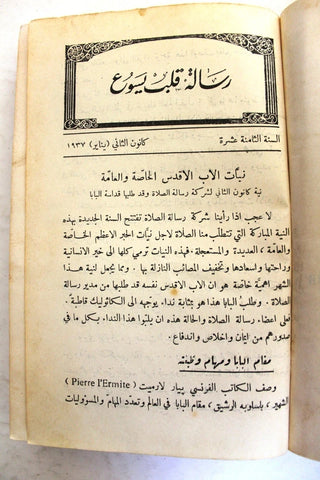 رسالة قلب يسوع
السنة الثامنة عشرة
كانون الثاني (يناير) ١٩٣٧
نيات الاب الاقدس الخاصة والعامة
نية كانون الثاني لشركة رسالة الصلاة وقد طلبها قداسة البابا
لا عجب اذا رأينا شركة رسالة الصلاة تفتتح السنة الجديدة بهذه
النية المباركة التي تتطلب منا الصلاة لاجل نيات الحبر الاعظم الخاصة
والعامة، العديدة والمستعجلة. فهذه النيات ترمي كلها الى خير الانسانية
وراحتها واسعادها وتخفيف المصائب النازلة بها. ومما يجمل لنية هذا
الشهر اهمية خاصة هو ان الاب الاقدس نفسه قد طلبها من مدير رسالة
الصلاة. وطلب البابا هذا هو بمثابة نداء يوجهه الى الكاثوليك قاطبة.
فعلى اعضاء رسالة الصلاة والحالة هذه ان يلبوا هذا النداء بكل ما في
صدورهم من ايمان واخلاص واندفاع.
مقام البابا ومهام وظيفته
وصف الكاتب الفرنسي پيار لارميت (Pierre l'Ermite)
الشهير، باسلوبه الرشيق، مقام البابا في العالم وتعدد المهام والمسؤوليات